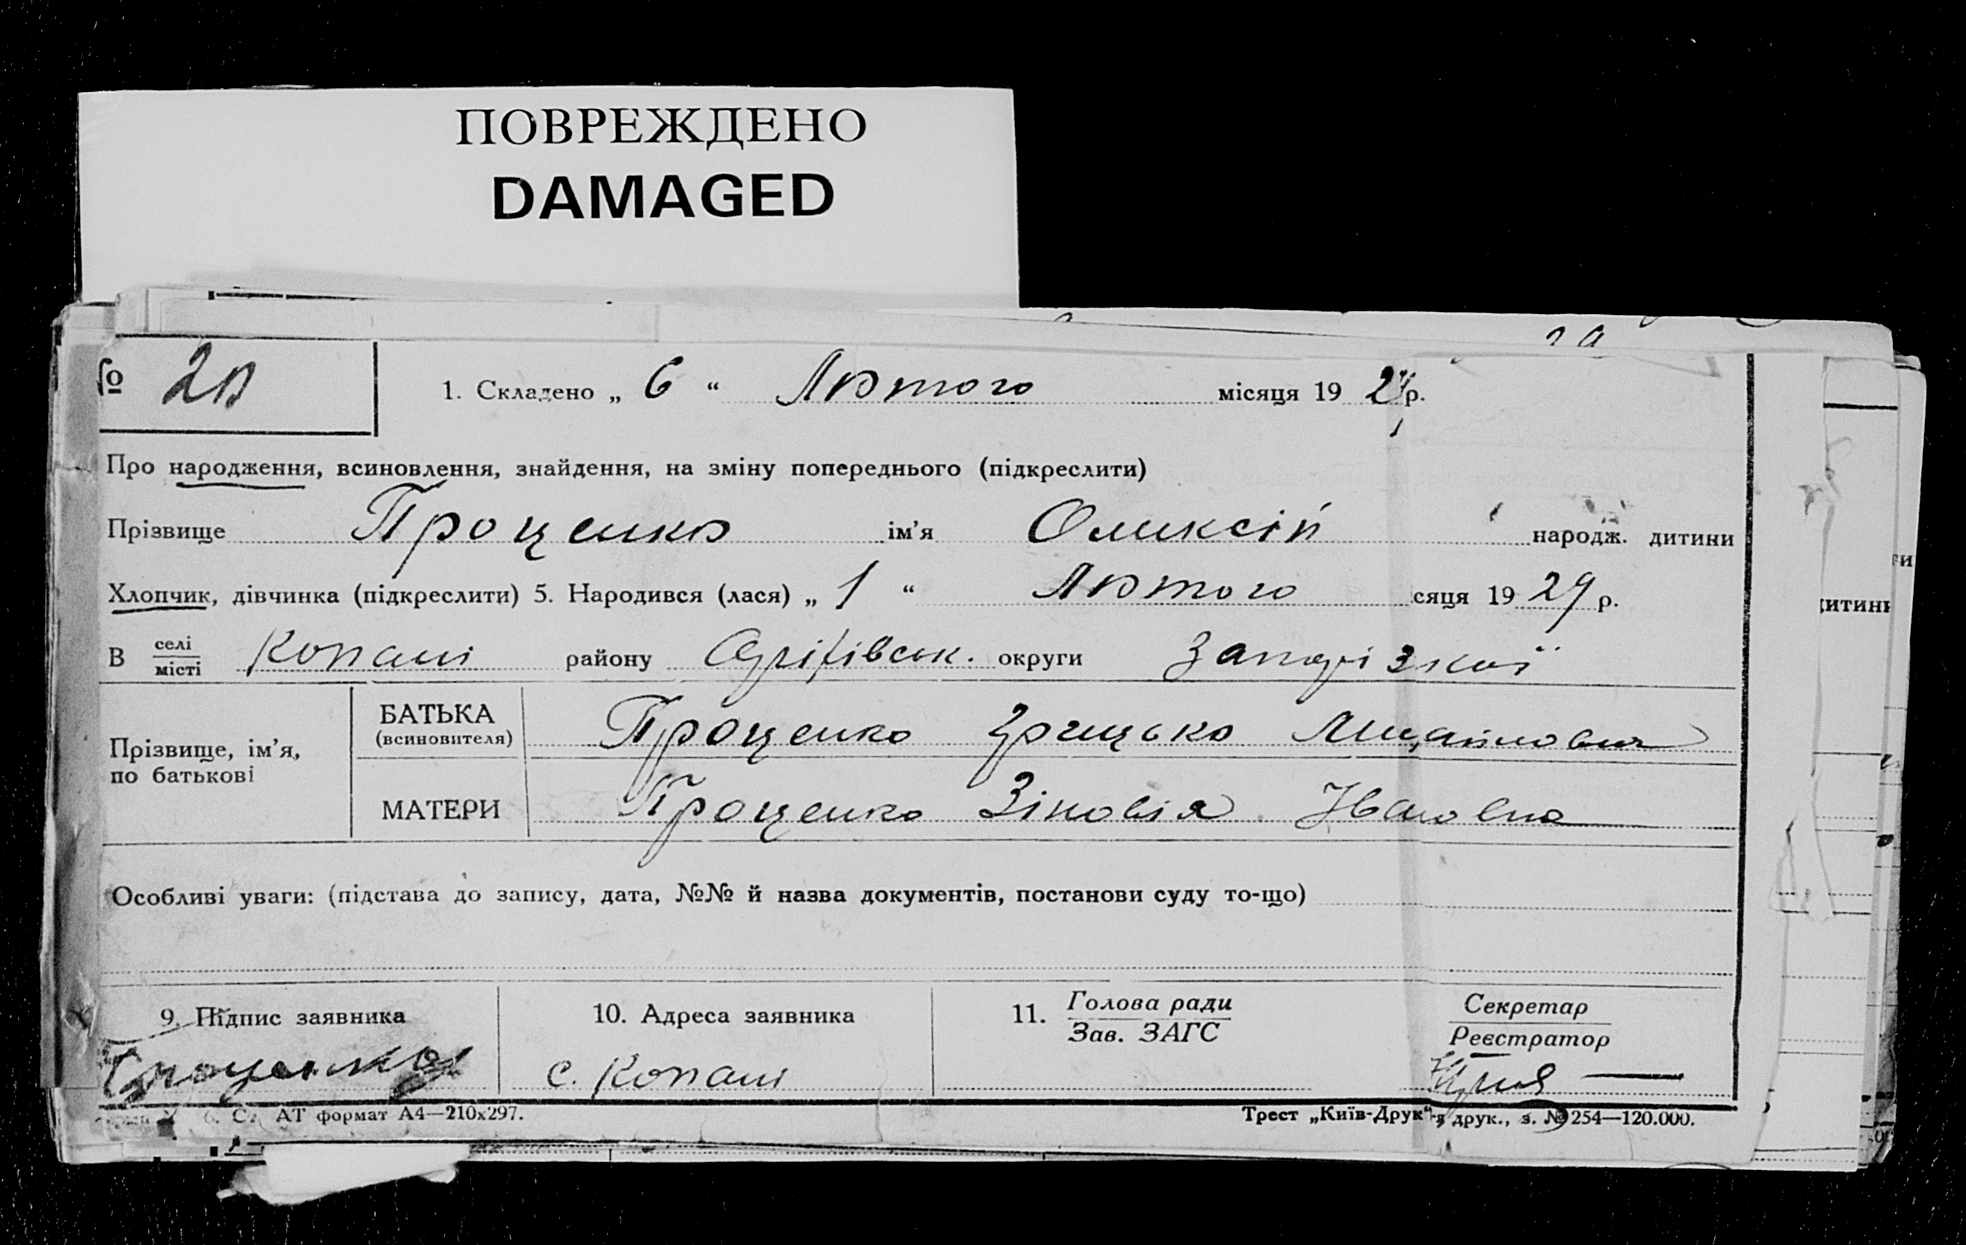 ПОВРЕЖДЕНО
DAMAGED
№ 20
1. Складено „ 6 “ Лютого місяця 19 29 р.
Про народження, всиновлення, знайдення, на зміну попереднього (підкреслити)
Прізвище Проценко ім’я Олексій народж. дитини
Хлопчик, дівчинка (підкреслити) 5. Народився (лася) „ 1 “ Лютого сяця 19 29 р.
В селі
місті Копані району Оріхівськ. округи Запорізкої
Прізвище, ім’я, по батькові
БАТЬКА (всиновителя) Проценко Грицько Михайлович
МАТЕРИ Проценко Зіновія Івановна
Особливі уваги: (підстава до запису, дата, №№ й назва документів, постанови суду то-що)
9. Підпис заявника
Проценко
10. Адреса заявника
с. Копані
11. Голова ради
Зав. ЗАГС
Секретар
Реєстратор
АТ формат А4—210х297.
Трест „Київ-Друк“, друк., з. № 254—120.000.